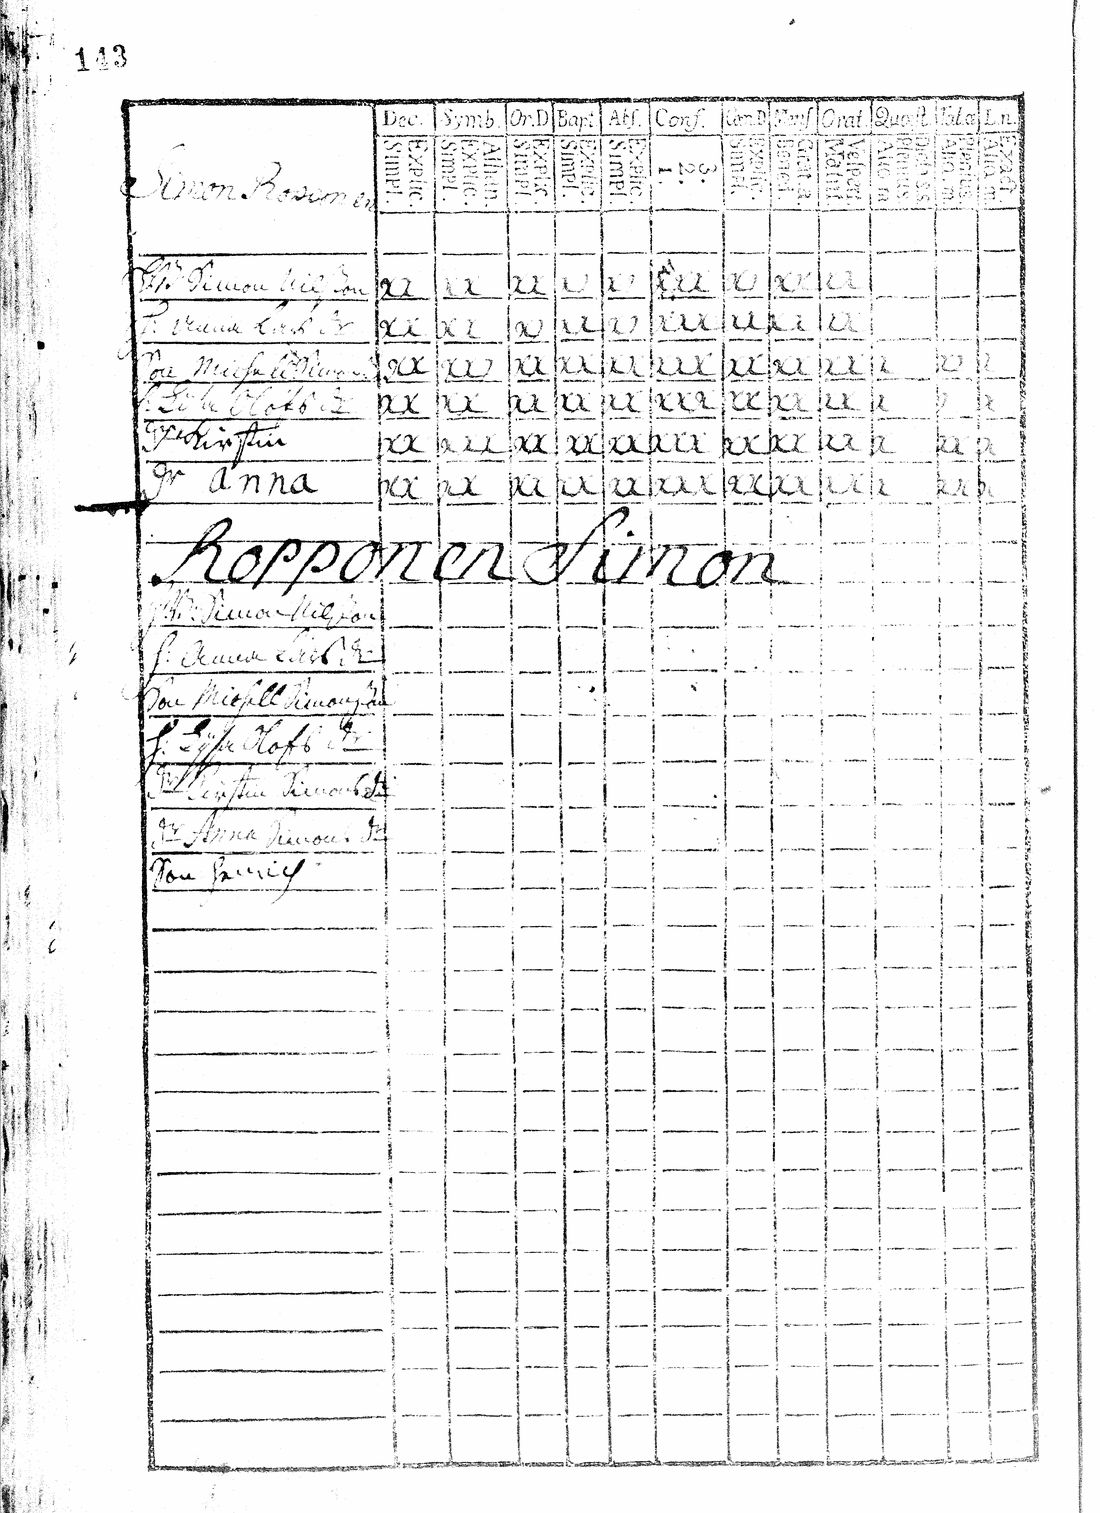 143
Dec. Symb. Or.D Bapt. Abs. Conf. Cœn.D Mens. Orat. Quæst. Tabœ L.n.
Explic. Simpl. Athan. Explic. Simpl. Explic. Simpl. Explic. Simpl. Explic. Simpl. 3. 2. 1. Explic. Simpl. Grat. a Bened. Vesperi Matut. Dict. SS Plenius Aliq. m Plenius Aliq. m Exact. Aliq. m
Simon
Simon Nilsson xx xx xx v v xxx xv xx xx
Anna Lars dr xx xx xv xx v xxx xx xx xx
Son Michell Simons xx xxv xx xx xx xxx xx xx xx x v x
h. Lisa Olofs dr xx xx xx xx xx xxx xx xx xx x x
Kirstin xx xxx xx xx xx xxx xx xx xx x xx x
dr anna xx xx xx xx xx xxx xx xx xx x xx x
Ropponen Simon
Simon Nilsson
h. Anna Lars dr
Son Michell Simonsson
h. Lisa Olofs dr
dr Kirstin Simons dr
dr Anna Simons dr
Son Henrich